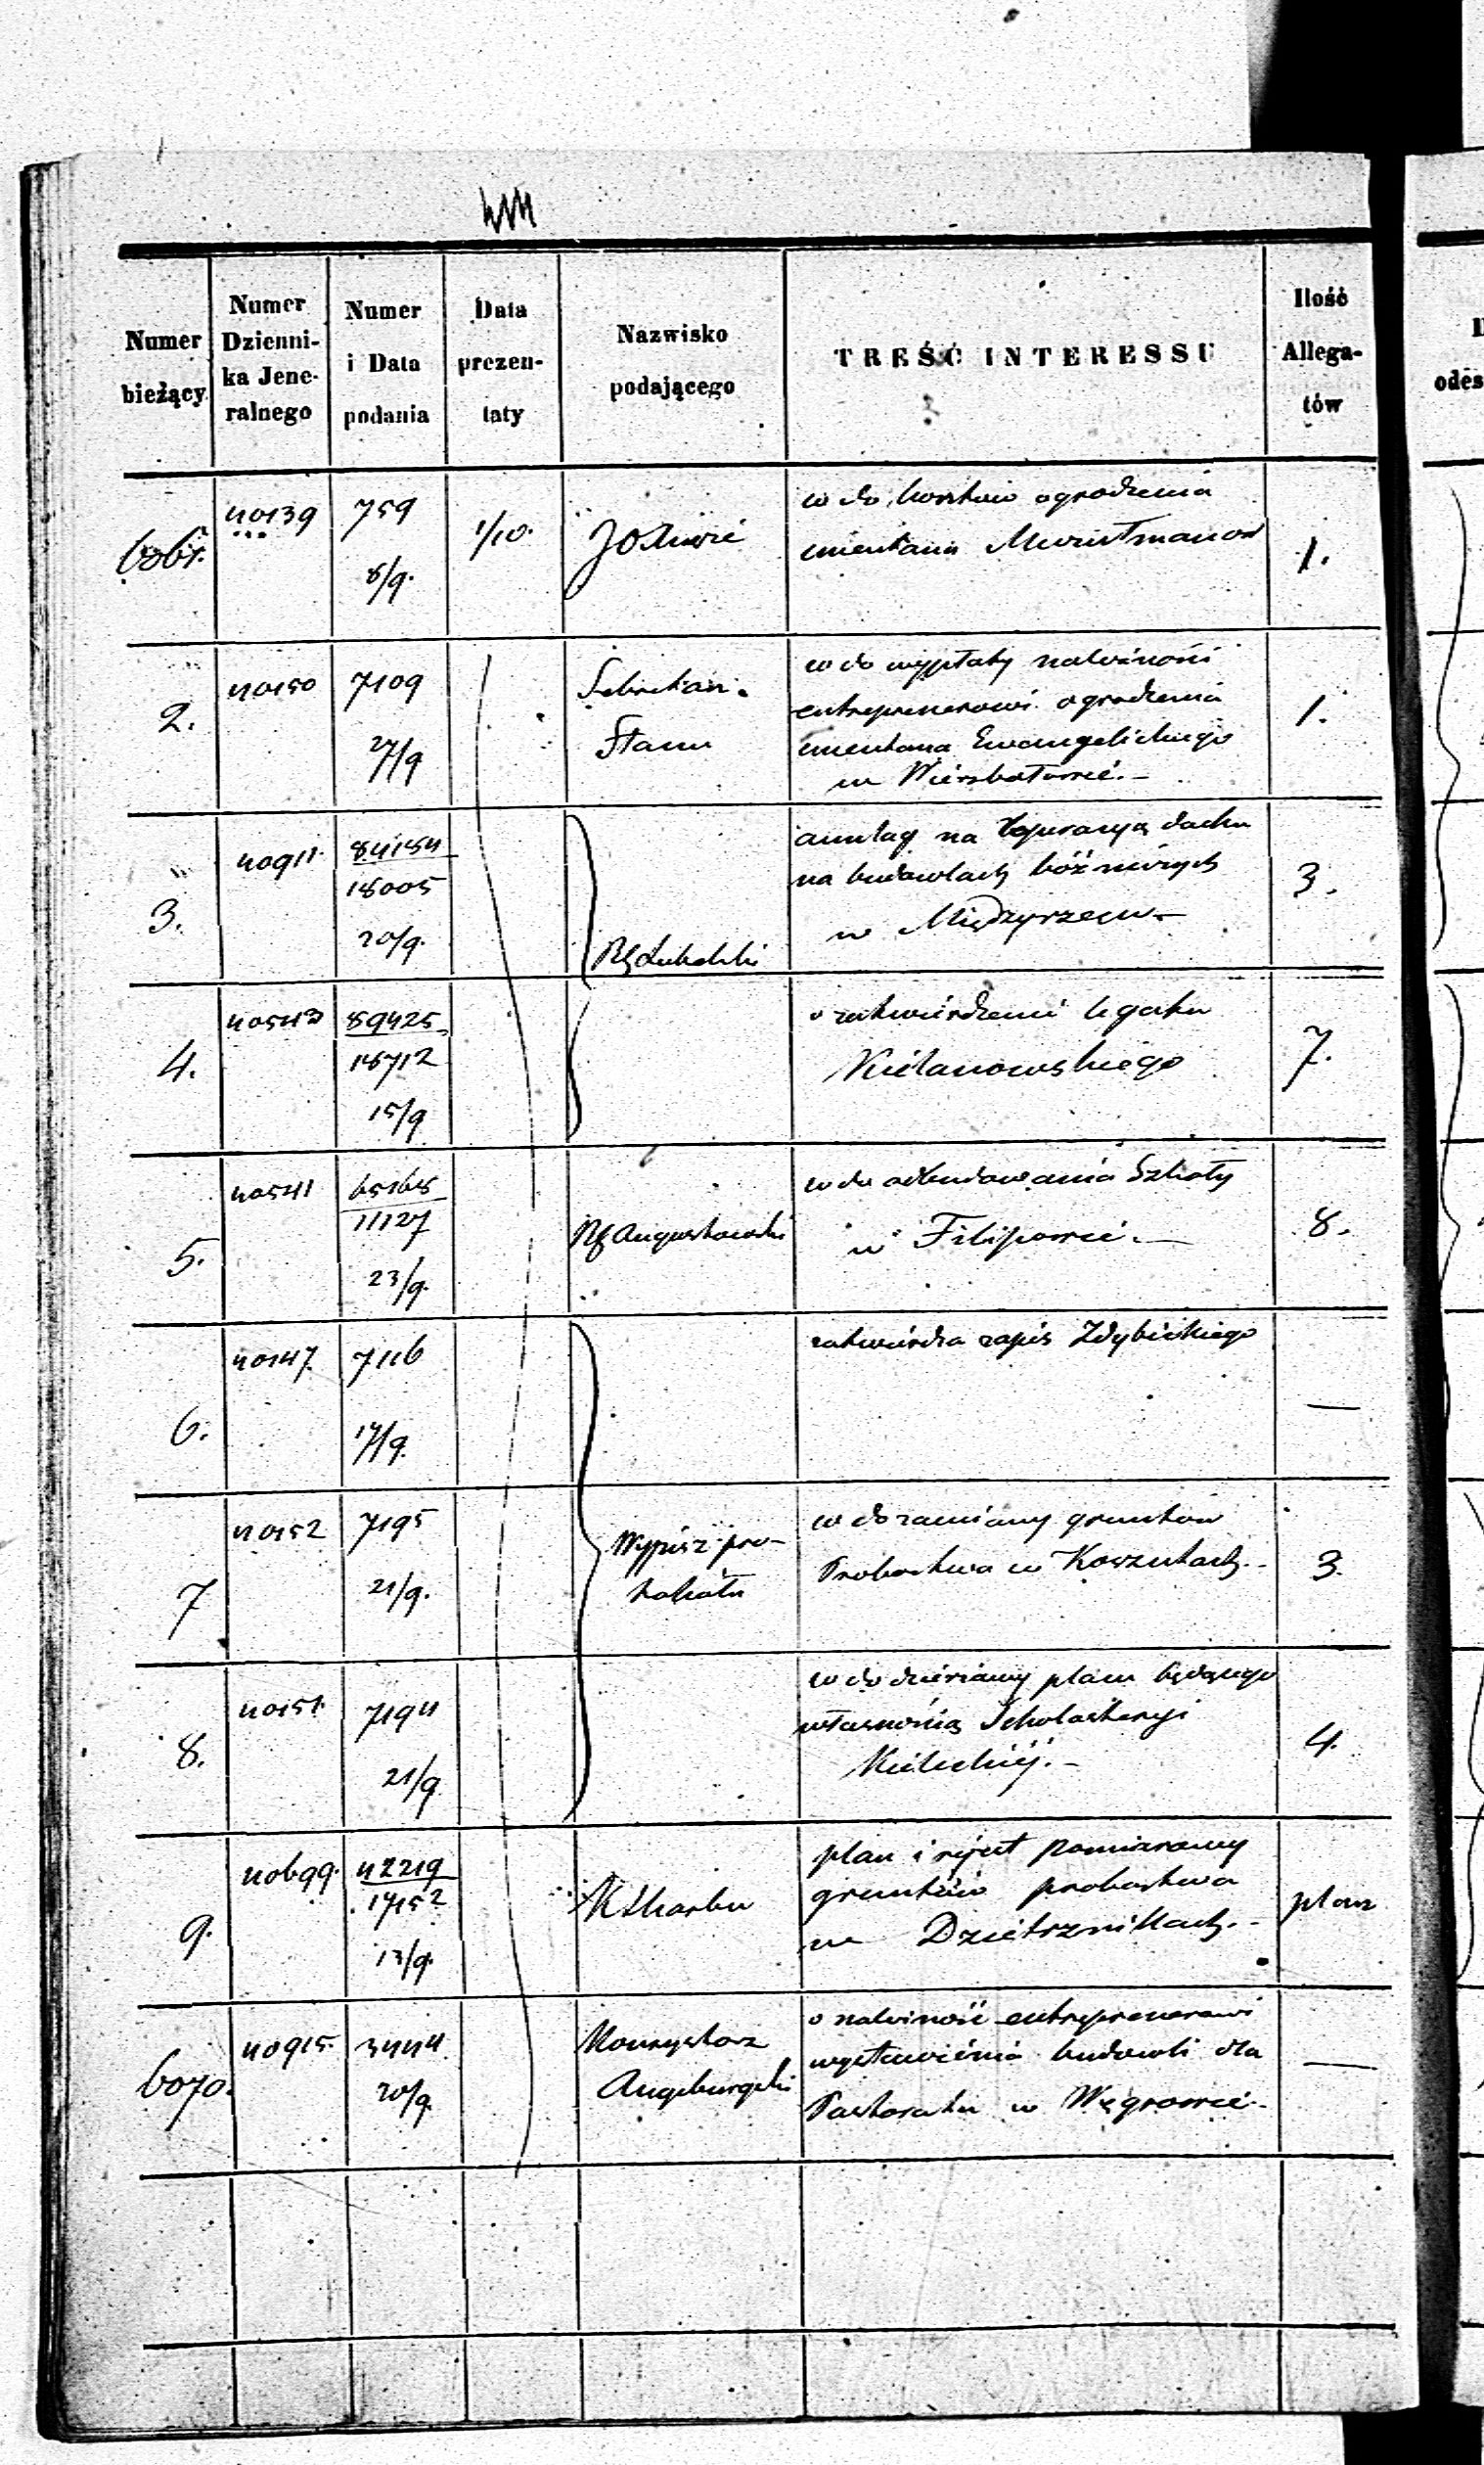 Numer bieżący
Numer Dzienni-
ka Jene-
ralnego
Numer
i Data
podania
Data
prezen-
taty
Nazwisko
podającego
TREŚĆ INTERESSU
Ilość
Allega-
tów
40139
759
8/9.
1/10.
w do kosztów ogrodzenia
cmentarza
1.
2.
40150
7109
27/9
w do wypłaty należności
entreprenerowi ogrodzenia
cmentarza Ewangelickiego
w Wierzbołowie.-
1.
3.
40911
84154
18005
20/9.
RG Lubelski
anszlag na reperacyą dachu
na budowlach bóżniczych
w Międzyrzecu.-
3.
4.
40543
89425
16712
15/9
o zatwierdzenie legatu
Kielanowskiego
7.
5.
40541
65165
11127
23/9.
RG Augustowski
w do odbudowania Szkoły
w Filipowie.-
8.
6.
40147
7116
17/9.
zatwierdza zapis Zdybickiego
—
7
40152
7195
21/9.
Wypis z pro-
tokółu
w do zamiany gruntów
Probostwa w Koszutach.-
3.
8.
40151
7194
21/9
w do dzierżawy placu będącego
własnością Scholasteryi
Kieleckiéj.-
4.
9.
40699.
42219
17152
13/9.
K Skarbu
plan i rejest pomiarowy
gruntów probostwa
w Dzietrznikach.-
plan
6070.
40915
3444
20/9.
Konsystorz
Augsburgski
o należność entreprenerowi
wystawienia budowli dla
Pastoratu w Węgrowie.-
—